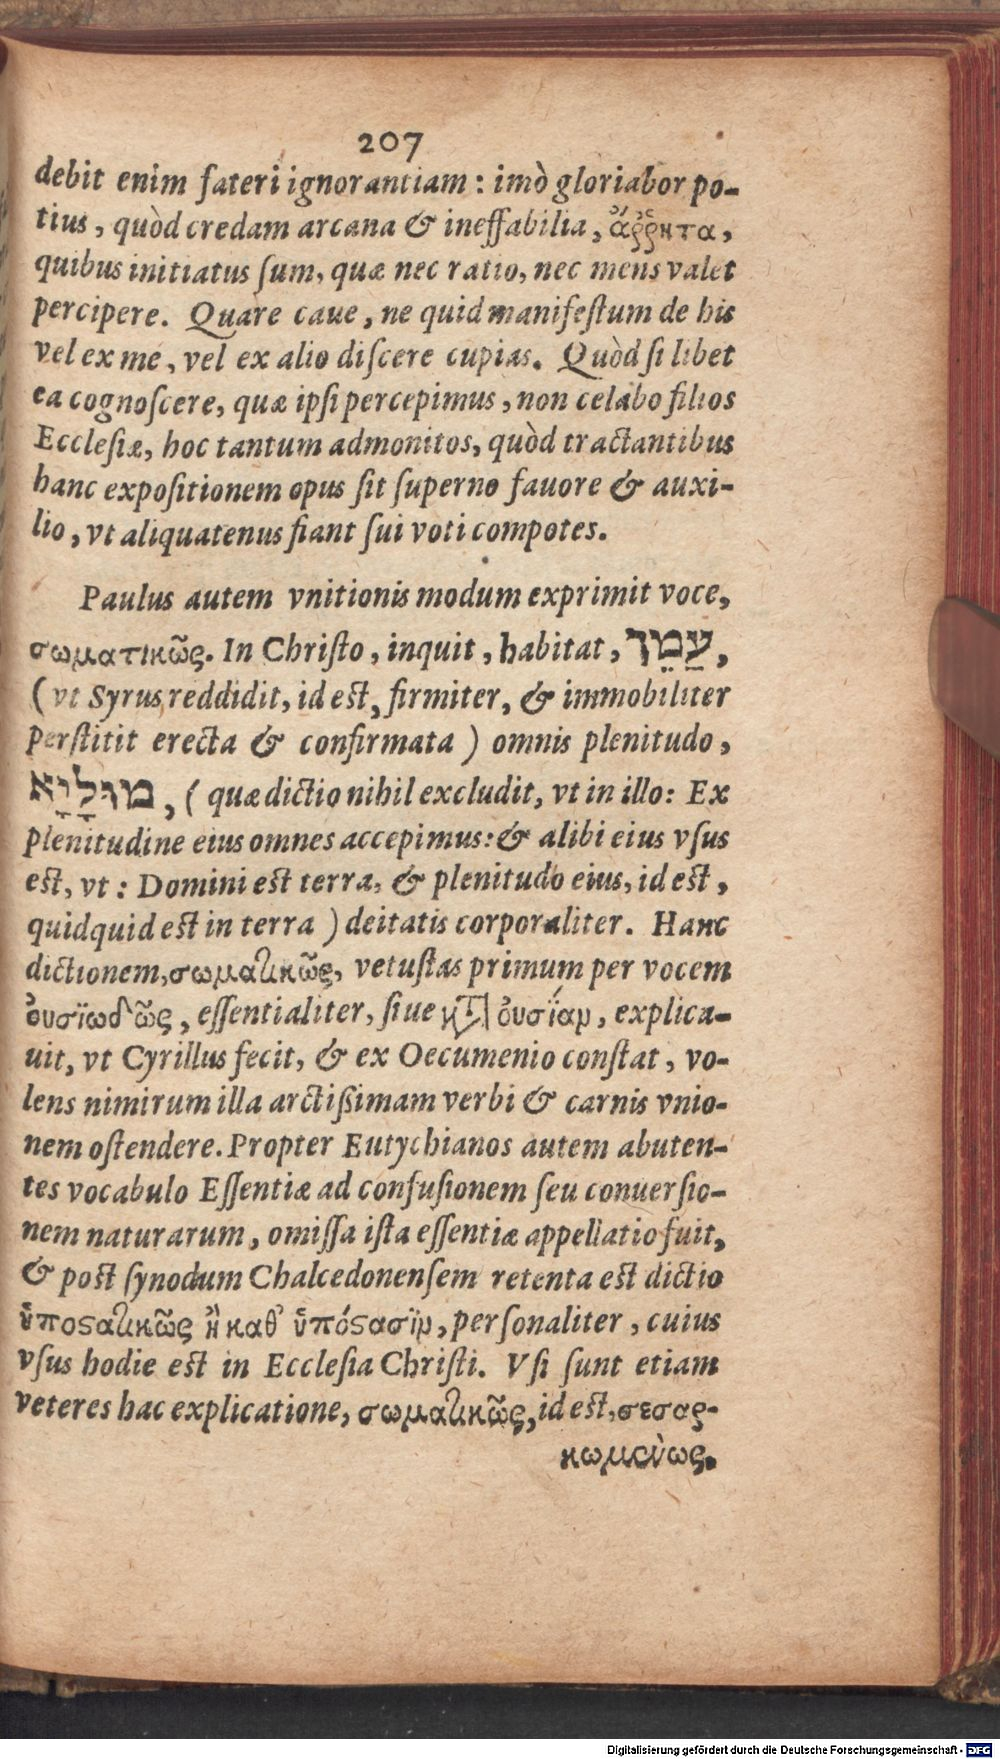 207
debit enim fateri ignorantiam: imò gloriabor po-
tius, quòd credam arcana & ineffabilia, ἄῤῥητα,
quibus initiatus sum, quæ nec ratio, nec mens valet
percipere. Quare caue, ne quid manifestum de his
vel ex me, vel ex alio discere cupias. Quòd si libet
ea cognoscere, quæ ipsi percepimus, non celabo filios
Ecclesiæ, hoc tantum admonitos, quòd tractantibus
hanc expositionem opus sit superno fauore & auxi-
lio, vt aliquatenus fiant sui voti compotes.
Paulus autem vnitionis modum exprimit voce,
σωματικῶς. In Christo, inquit, habitat, עַמֵר,
(vt Syrus reddidit, id est, firmiter, & immobiliter
perstitit erecta & confirmata) omnis plenitudo,
מוּלָיָא, (quæ dictio nihil excludit, vt in illo: Ex
plenitudine eius omnes accepimus: & alibi eius vsus
est, vt: Domini est terra, & plenitudo eius, id est,
quidquid est in terra) deitatis corporaliter. Hanc
dictionem, σωματικῶς, vetustas primum per vocem
οὐσϊωδῶς, essentialiter, siue κτ οὐσΐαν, explica-
uit, vt Cyrillus fecit, & ex Oecumenio constat, vo-
lens nimirum illa arctißimam verbi & carnis vnio-
nem ostendere. Propter Eutychianos autem abuten-
tes vocabulo Essentiæ ad confusionem seu conuersio-
nem naturarum, omissa ista essentiæ appellatio fuit,
& post synodum Chalcedonensem retenta est dictio
ὑποστατικῶς ἢ καθ' ὑπόστασϊν, personaliter, cuius
vsus hodie est in Ecclesia Christi. Vsi sunt etiam
veteres hac explicatione, σωματικῶς, id est, σεσαρ-
κωμένως.
Digitalisierung gefördert durch die Deutsche Forschungsgemeinschaft - DFG